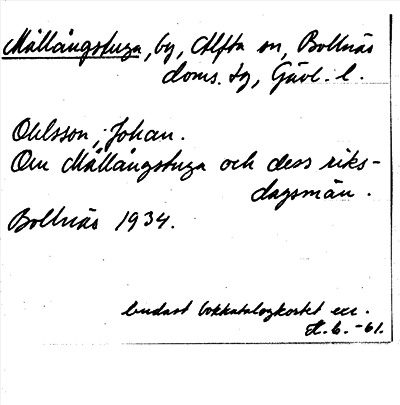 Mållångstuga, by, Alfta sn, Bollnäs
doms. tg, Gävl. l.
Ohlsson, Johan.
Om Mållångstuga och dess riks-
dagsmän.
Bollnäs 1934.
endast bokkatalogkortet exc.
H. 6. -61.